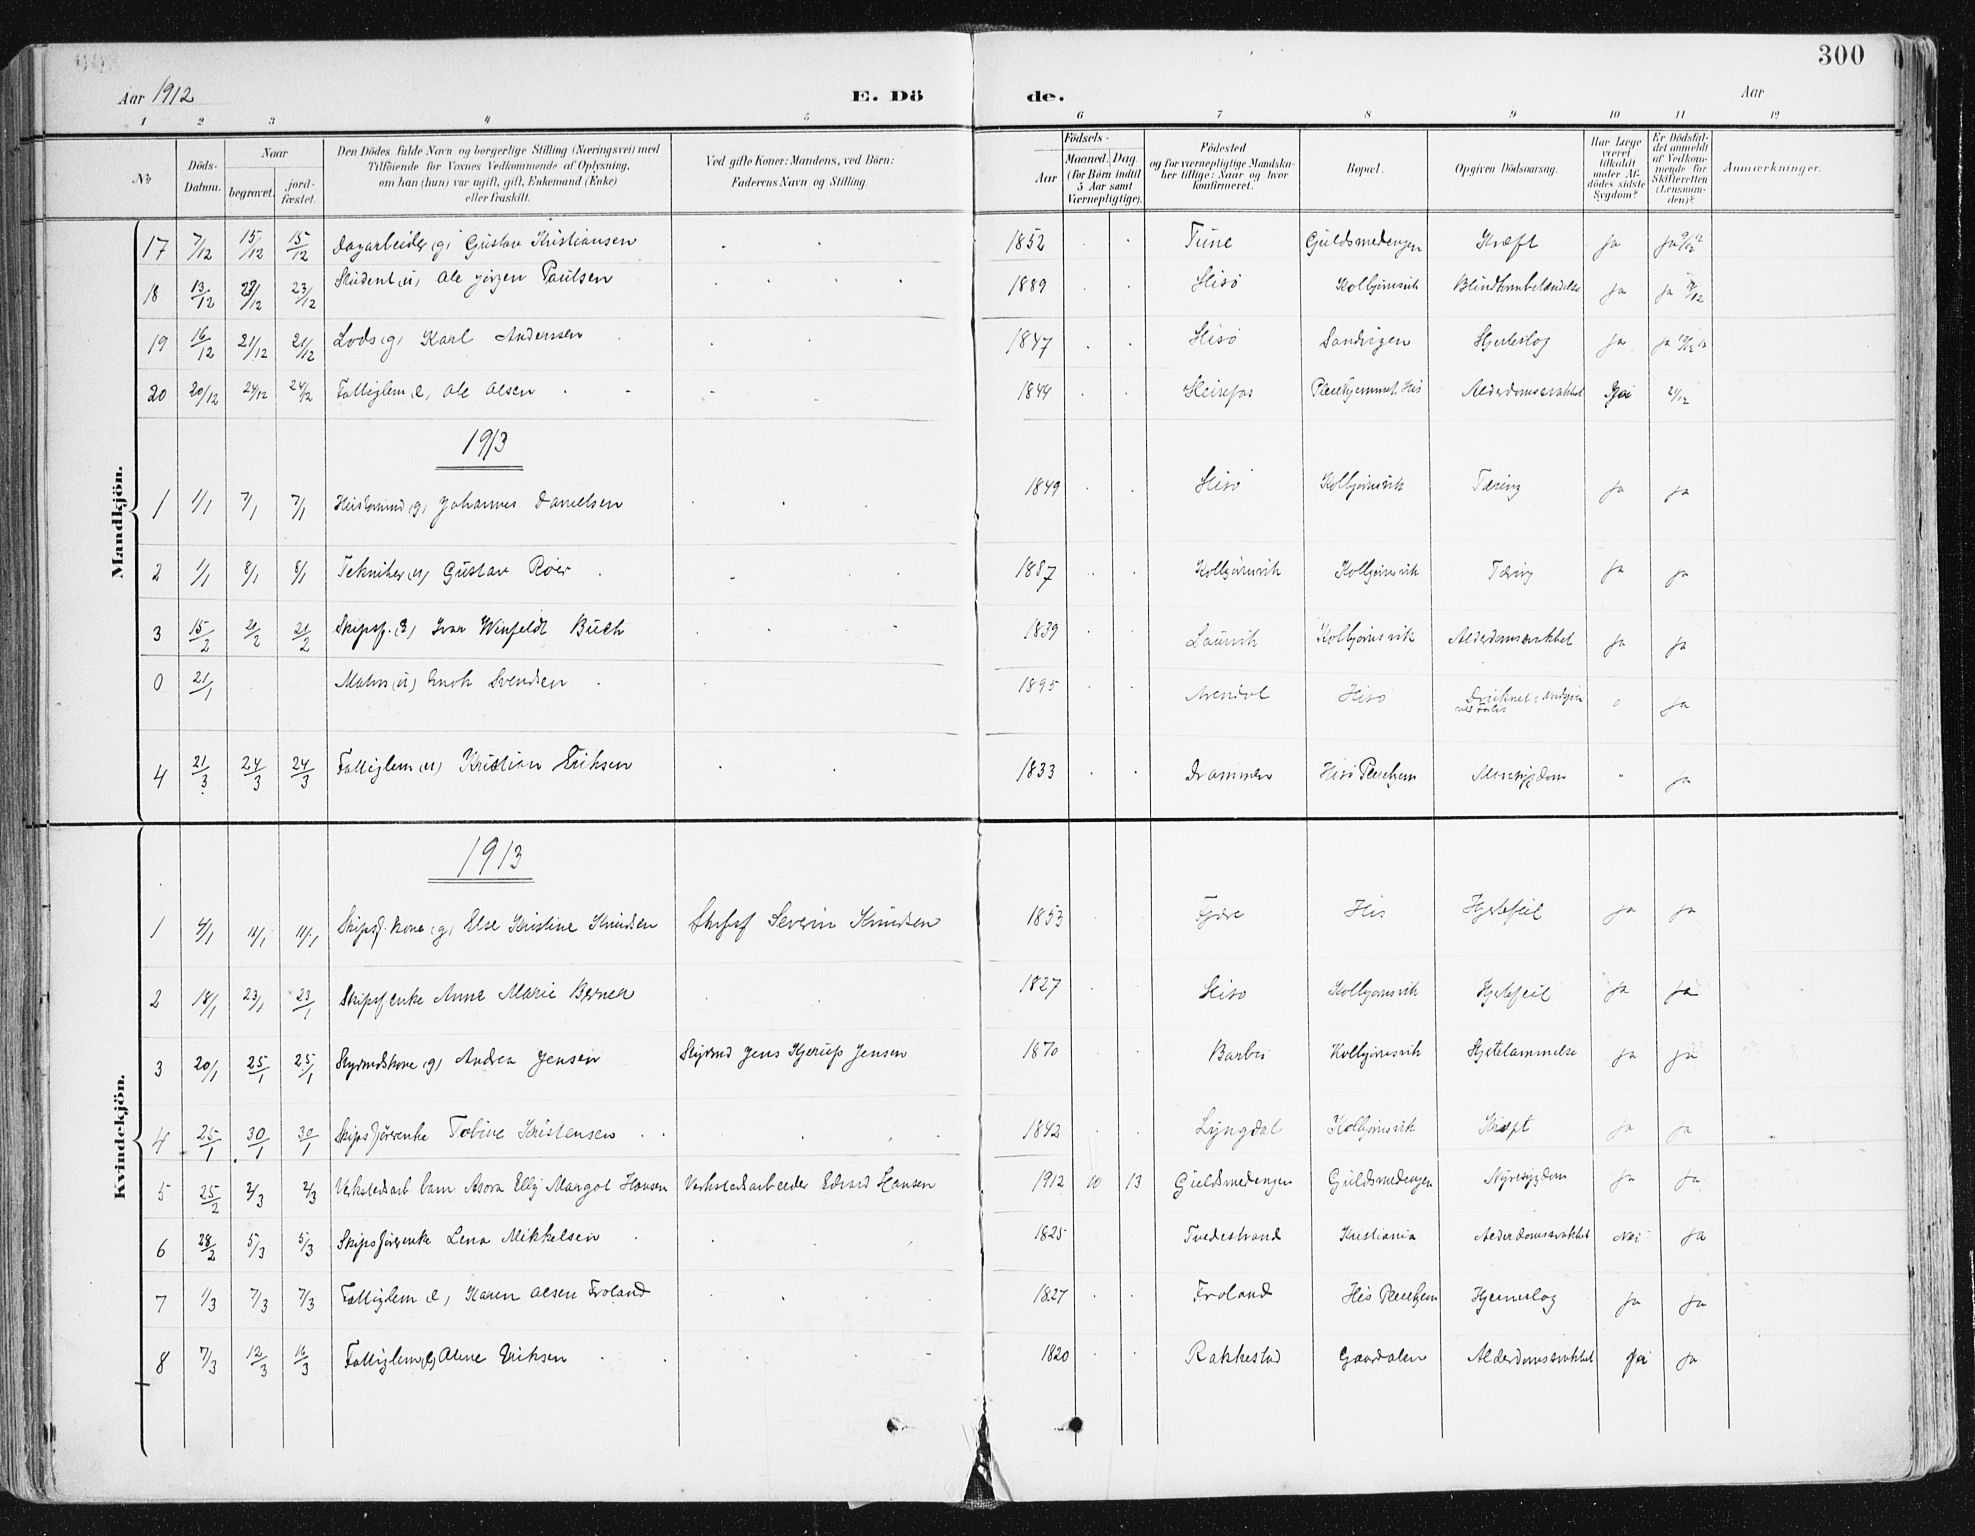 300
Aar 1912 E. Dö de. Aar
1 2 3 4 5 6 7 8 9 10 11 12
No
Döds-Datum.
Naar
begravet.
jord-fæstet.
Den Dödes fulde Navn og borgerlige Stilling (Næringsvei) med
Tilföiende for Voxnes Vedkommende af Oplysning,
om han (hun) var ugift, gift, Enkemand (Enke)
eller fraskilt.
Ved gifte Koner: Mandens, ved Börn:
Faderens Navn og Stilling.
Födsels-
Aar
Maaned. Dag.
(for Börn indtil
5 Aar samt
Værnepligtige).
Födested
og for værnepligtige Mandska-
ber tillige: Naar og hvor
konfirmeret.
Bopæl.
Opgiven Dödsaarsag.
Har Læge
været
tilkaldt
under Af-
dödes sidste
Sygdom?
Er Dödsfal-
det anmeldt
af Vedkom-
mende for
Skifteretten
(Lensman-
den)?
Anmærkninger.
Mandkjön.
17 7/12 15/12 15/12 Dagarbeider (g) Gustav Kristiansen 1852 Tune Guldsmedengen Kræft ja ja 9/12
18 13/12 23/12 23/12 Student (u) Ole Jörgen Paulsen 1889 Hisö Kolbjörnsvik Blindtarmbetændelse ja ja
19 16/12 21/12 21/12 Lods (g) Karl Andersen 1847 Hisö Sandvigen Hjerteslag ja ja
20 20/12 24/12 24/12 Fattiglem e, Ole Olsen 1844 Pleiehjemmet His Alderdomssvakhet 21/12
1913
1 1/1 7/1 7/1 (g) Johannes Danielsen 1849 Hisö Kolbjörnsvik Tæring ja ja
2 1/1 8/1 8/1 Tekniker (u) Gustav Röer 1887 Kolbjörnsvik Kolbjörnsvik Tæring ja ja
3 15/2 21/2 21/2 Skipsf. Ivar Winfeldt Buch 1839 Laurvik Kolbjörnsvik Alderdomssvakhet ja ja
0 21/1 Matros (u) Enok Svendsen 1895 Arendal Hisö Druknet ja
4 21/3 24/3 24/3 Fattiglem (u) Kristian Eriksen 1833 Drammen Hisö Pleiehjem " ja
Kvindekjön.
1913
1 4/1 11/1 11/1 Skipsf. kone (g) Else Kristine Knudsen Skipsf Severin Knudsen 1853 Fjære His Hjertefeil ja ja
2 18/1 23/1 23/1 Skipsf enke Anne Marie Berner 1827 Hisö Kolbjörnsvik Hjertefeil ja ja
3 20/1 25/1 25/1 Styrmdskone (g) Andrea Jensen Styrmd Jens Kjerulf Jensen 1870 Barbu Kolbjörnsvik Hjertelammelse ja ja
4 25/1 30/1 30/1 Skipsförerenke Tobine Kristensen 1842 Lyngdal Kolbjörnsvik Kræft ja ja
5 25/2 2/3 2/3 Verkstedsarb. barn Asora Elly Margot Hansen Verkstedsarbeider Edvard Hansen 1912 10 13 Guldsmedengen Guldsmedengen Nyresygdom ja ja
6 28/2 5/3 5/3 Skipsförerenke Lena Mikkelsen 1825 Tvedestrand Kristiania Alderdomssvakhet Nei ja
7 1/3 7/3 7/3 Fattiglem e, Karen Olsen Froland 1827 Froland His Pleiehjem Hjerneslag ja ja
8 7/3 12/3 16/3 Fattiglem (e) Oline Eriksen 1820 Rakkestad Gaardalen Alderdomssvakhet ja